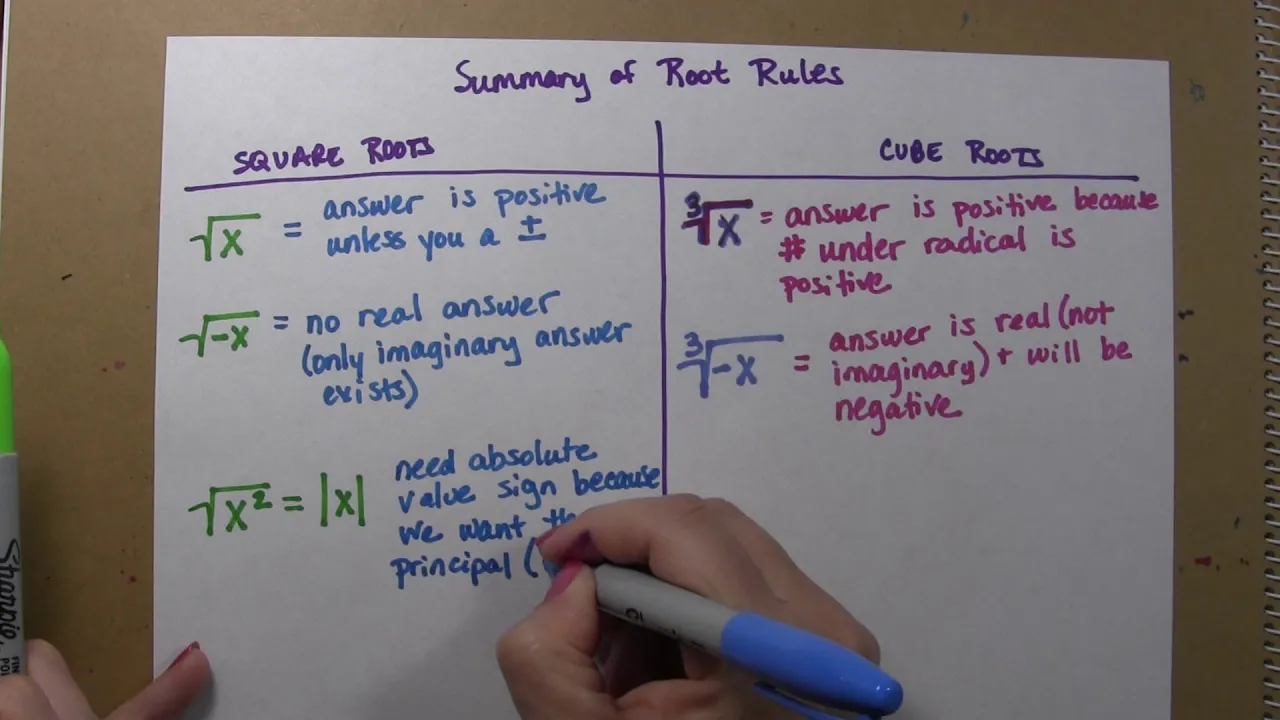 Summary of Root Rules
SQUARE ROOTS
√x = answer is positive
unless you a ±
√-x = no real answer
(only imaginary answer
exists)
√x² = |x| need absolute
value sign because
we want
principal (
CUBE ROOTS
³√x = answer is positive because
# under radical is
positive
³√-x = answer is real (not
imaginary) + will be
negative
Sharpie